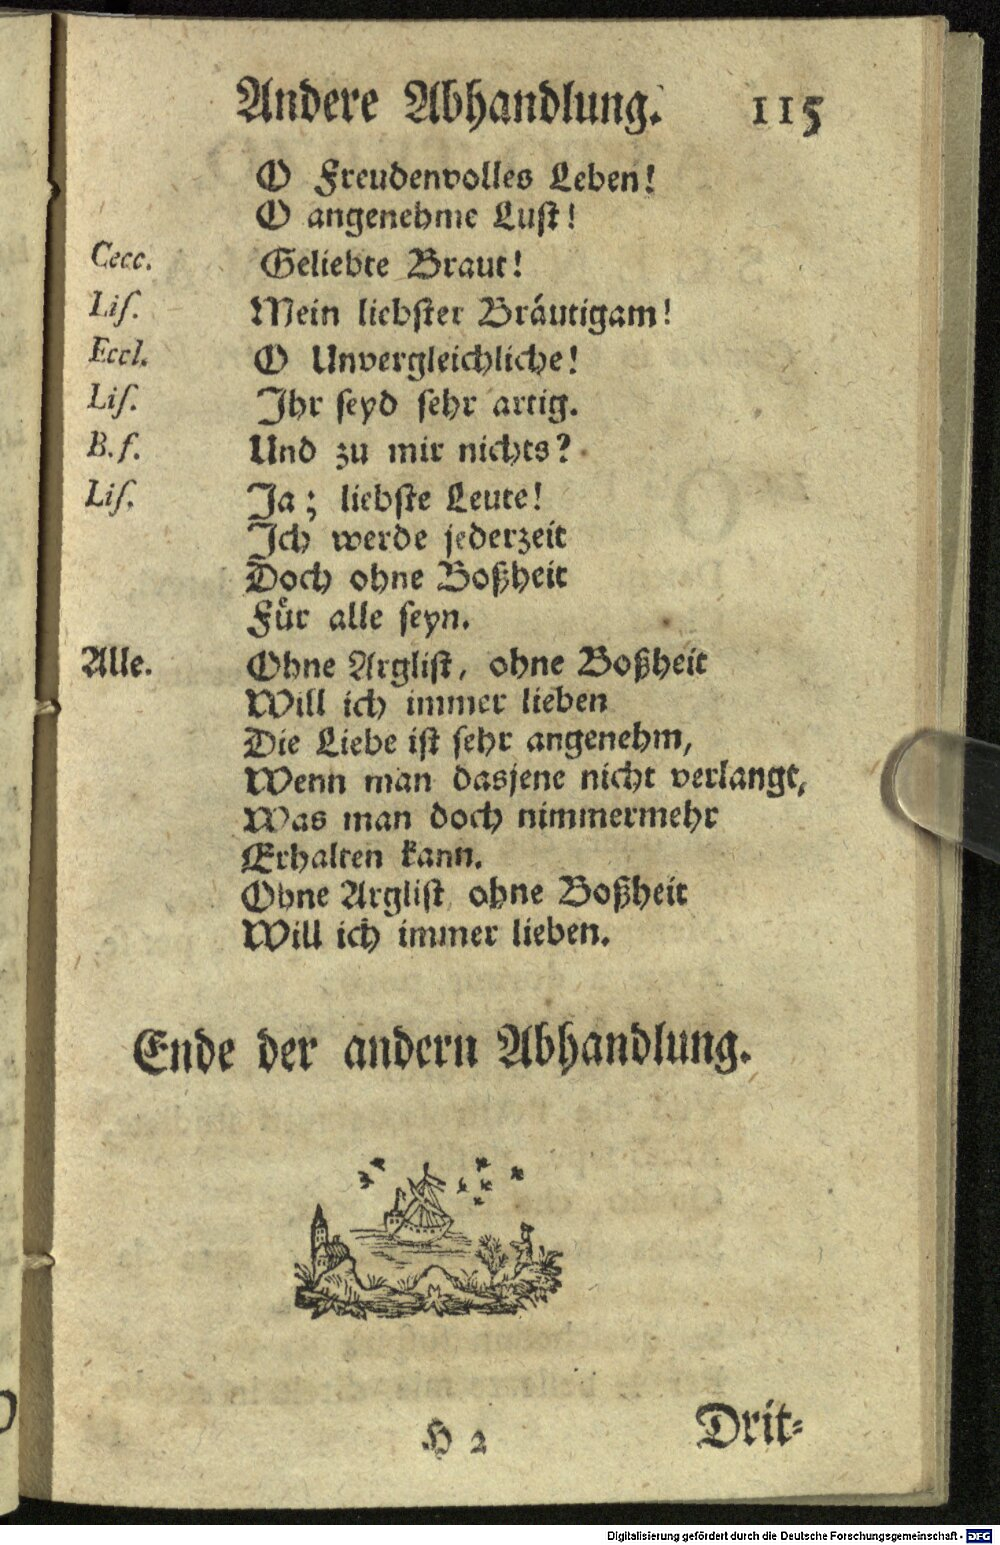 Andere Abhandlung. 115
O Freudenvolles Leben!
O angenehme Lust!
Cecc. Geliebte Braut!
Lis. Mein liebster Bräutigam!
Eccl. O Unvergleichliche!
Lis. Ihr seyd sehr artig.
B.f. Und zu mir nichts?
Lis. Ja; liebste Leute!
Ich werde jederzeit
Doch ohne Boßheit
Für alle seyn.
Alle. Ohne Arglist, ohne Boßheit
Will ich immer lieben
Die Liebe ist sehr angenehm,
Wenn man dasjene nicht verlangt,
Was man doch nimmermehr
Erhalten kann.
Ohne Arglist ohne Boßheit
Will ich immer lieben.
Ende der andern Abhandlung.
H 2 Drit=
Digitalisierung gefördert durch die Deutsche Forschungsgemeinschaft - DFG